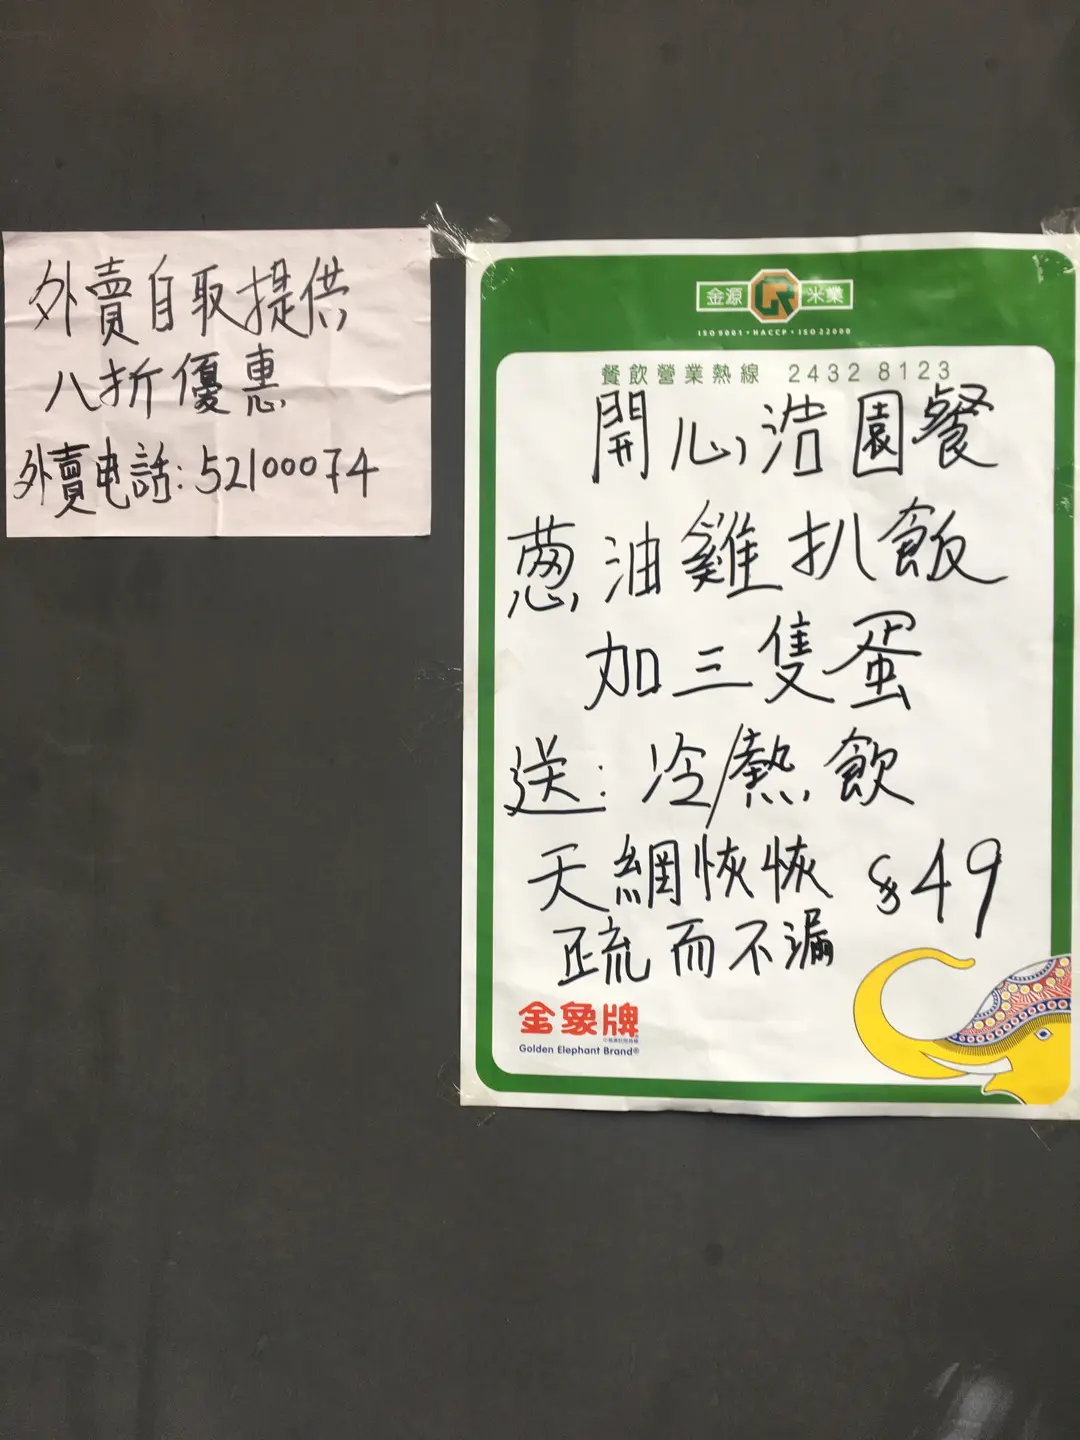 外賣自取提供
八折優惠
外賣电話:52100074
金源 GR 米業
ISO 9001 • HACCP • ISO 22000
餐飲營業熱線 2432 8123
開心浩園餐
蔥油雞扒飯
加三隻蛋
送:冷/熱飲
天網恢恢 $49
疏而不漏
金象牌
Golden Elephant Brand®